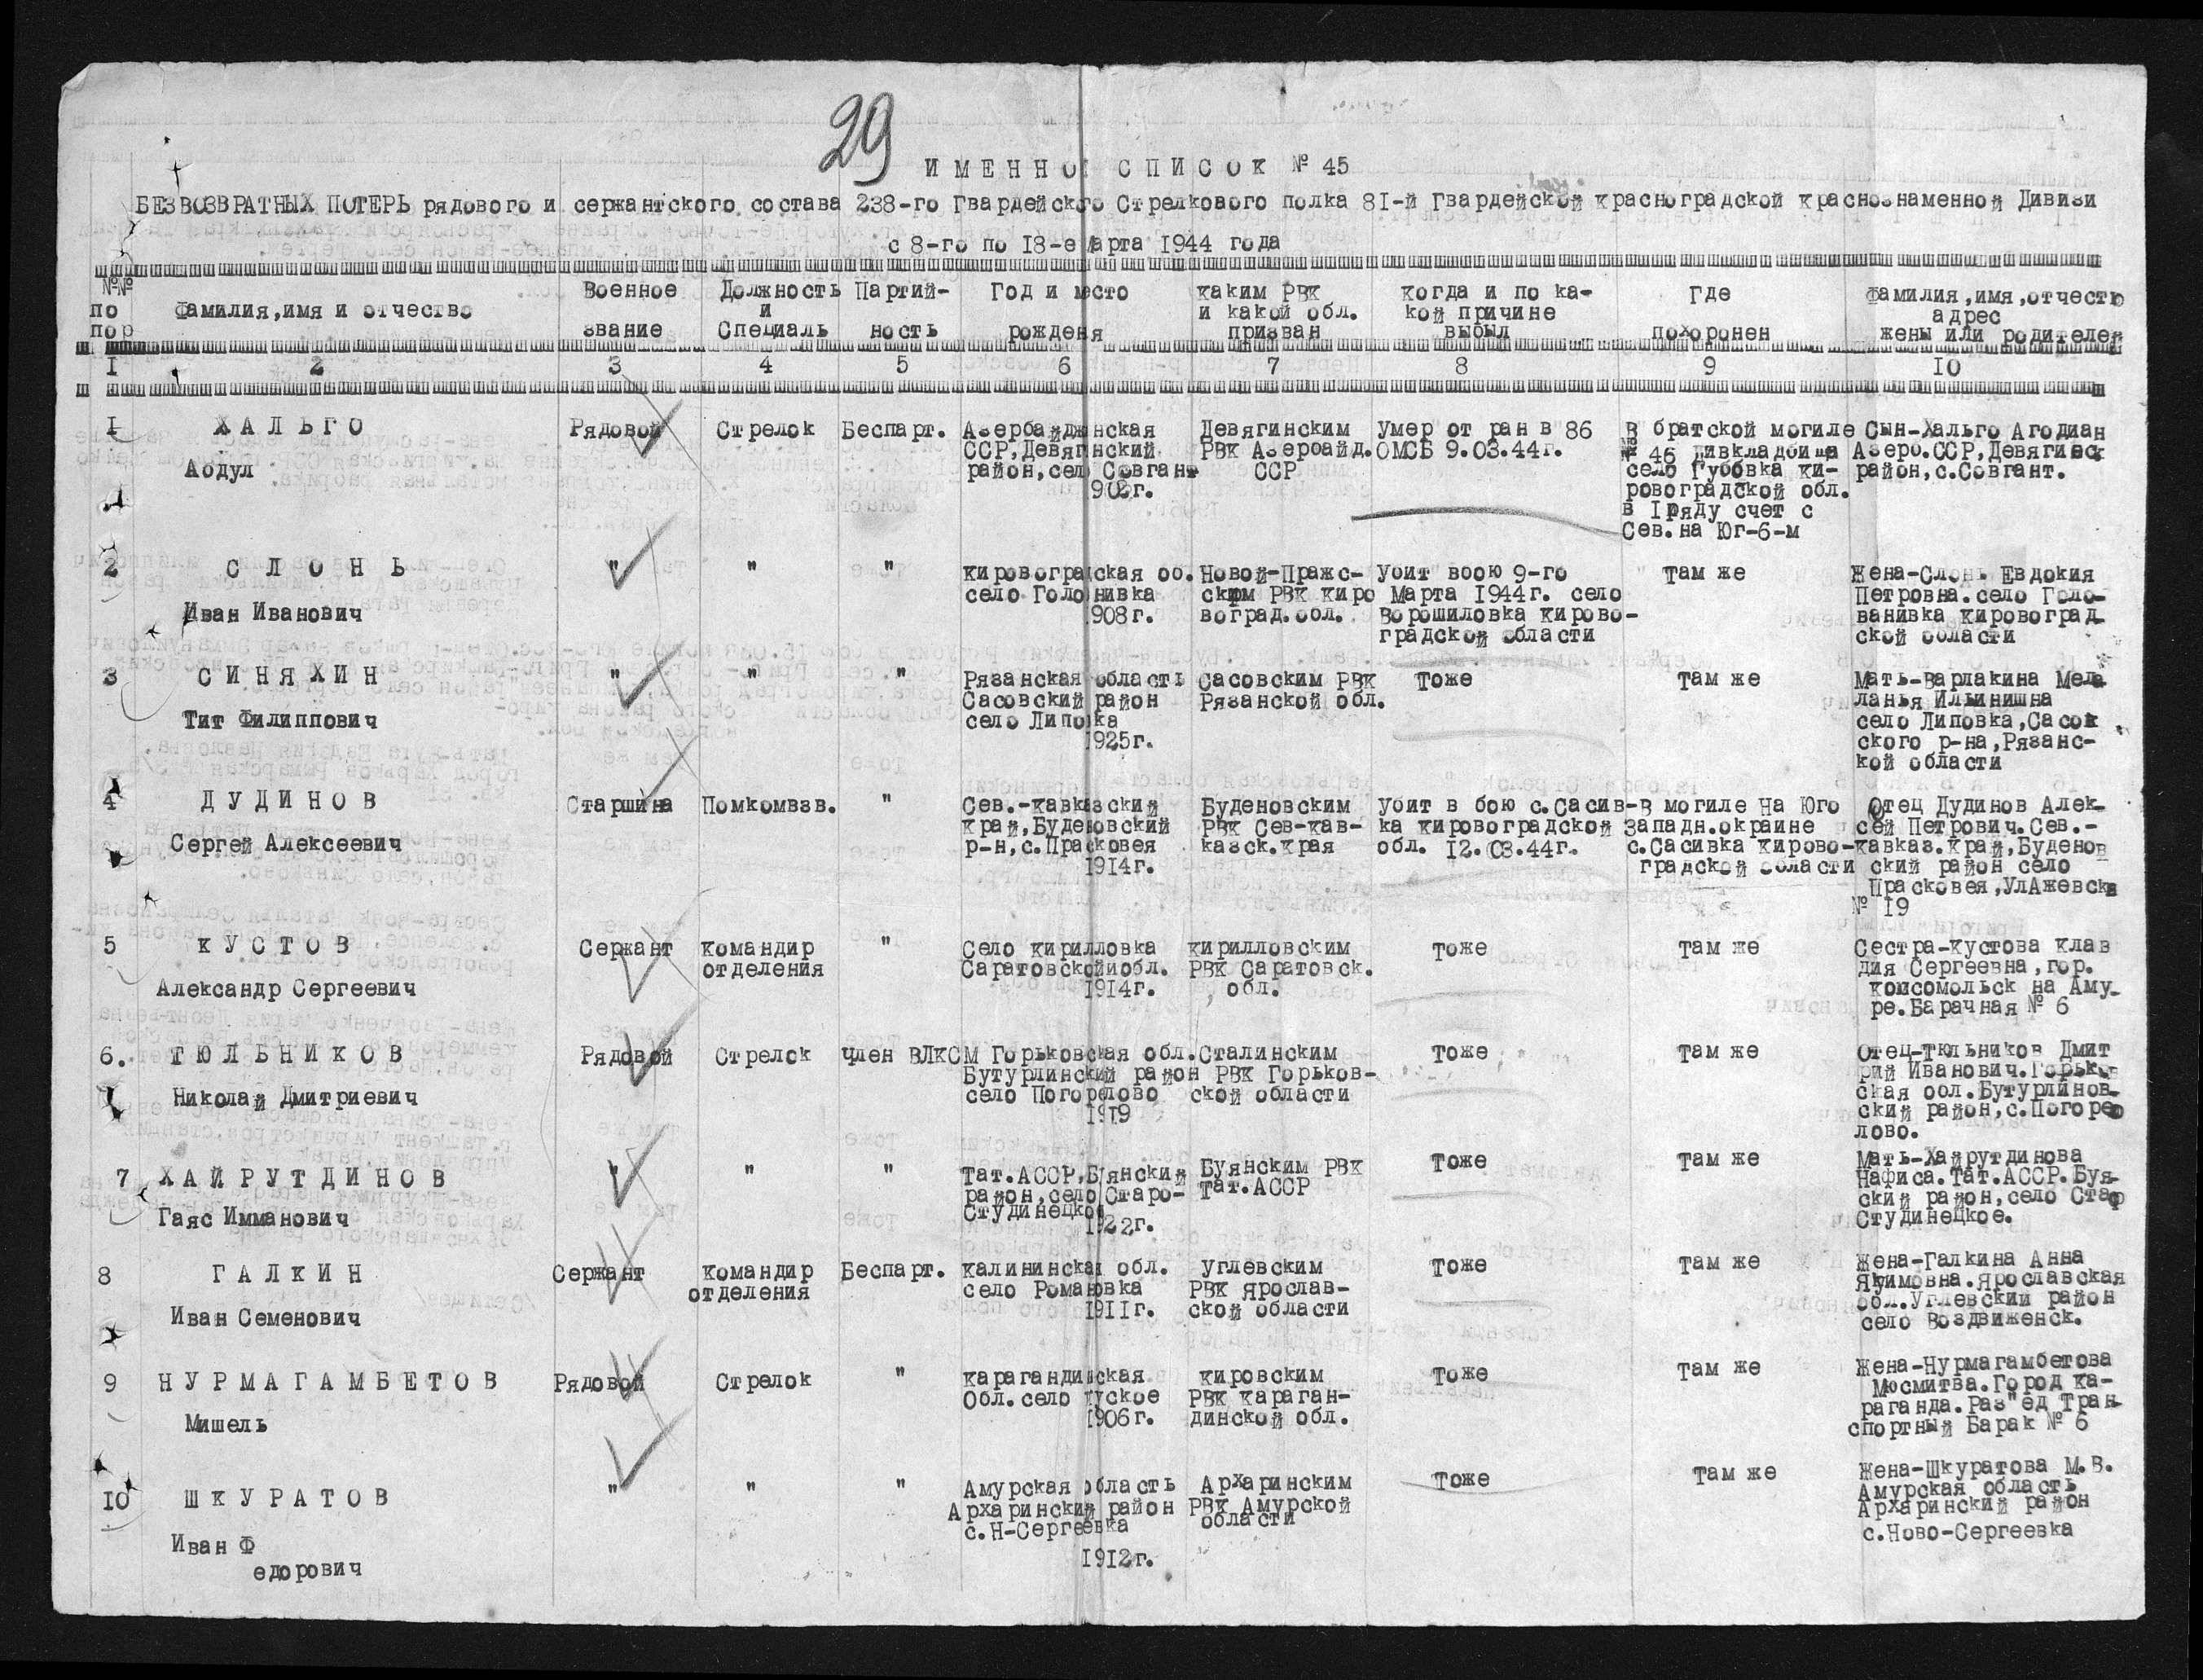 29
ИМЕННОЙ СПИСОК № 45
БЕЗВОЗВРАТНЫХ ПОТЕРЬ рядового и сержантского состава 238-го Гвардейского Стрелкового полка 81-й Гвардейской красноградской краснознаменной Дивизи
с 8-го по 18-е марта 1944 года
№№ по пор
Фамилия,имя и отчество
Военное звание
Должность и Специаль
Партий- ность
Год и место рожденя
каким РВК и какой обл. призван
когда и по ка- кой причине выбыл
Где похоронен
Фамилия,имя,отчеств адрес жены или родителей
1 2 3 4 5 6 7 8 9 10
1 ХАЛЬГО
Абдул
Рядовой
Стрелок
Беспарт.
Азербайджанская
ССР,Девягинский
район,село Совгант
1902г.
Девягинским
РВК Азербайд.
ССР
Умер от ран в 86
ОМСБ 9.03.44г.
В братской могиле
№ 46 дивкладбища
село Губовка ки-
ровоградской обл.
в 1 ряду счет с
Сев.на Юг-6-м
Сын-Хальго Агодиан
Азерб.ССР,Девягинск
район,с.Совгант.
2 СЛОНЬ
Иван Иванович
" " "
кировоградская об.
село Головнивка
1908г.
Новой-Пражс-
ским РВК киро
воград.обл.
Убит вбою 9-го
Марта 1944г. село
Ворошиловка кирово-
градской области
Там же
Жена-Слонь Евдокия
Петровна.село Голо-
ванивка кировоград-
ской области
3 СИНЯХИН
Тит Филиппович
" " "
Рязанская область
Сасовский район
село Липовка
1925г.
Сасовским РВК
Рязанской обл.
Тоже
Там же
Мать-Варлакина Мела
ланья Ильинишна
село Липовка,Сасов
ского р-на,Рязанс-
кой области
4 ДУДИНОВ
Сергей Алексеевич
Старшина
Помкомвзв.
"
Сев.-кавказский
край,Буденовский
р-н,с.Прасковея
1914г.
Буденовским
РВК Сев-кав-
казск.края
Убит в бою с.Сасив-
ка кировоградской
обл. 12.03.44г.
В могиле на Юго
Западн.окраине
с.Сасивка кирово-
градской области
Отец Дудинов Алек-
сей Петрович.Сев.-
кавказ.край,Буденов
ский район село
Прасковея,УлАжевска
№ 19
5 КУСТОВ
Александр Сергеевич
Сержант
командир
отделения
"
Село кирилловка
Саратовскойиобл.
1914г.
кирилловским
РВК Саратовск.
обл.
тоже
Там же
Сестра-кустова клав
дия Сергеевна,гор.
комсомольск на Аму-
ре.Барачная № 6
6. ТЮЛЬНИКОВ
Николай Дмитриевич
Рядовой
Стрелок
член ВЛКСМ
Горьковская обл.
Бутурлинский район
село Погорелово
1919
Сталинским
РВК Горьков-
ской области
Тоже
Там же
Отец-тюльников Дмит
рий Иванович.Горьков
ская обл.Бутурлинов-
ский район,с.Погоре
лово.
7 ХАЙРУТДИНОВ
Гаяс Имманович
" " "
Тат.АССР,Буянский
район,село Старо-
Студинецкое
1922г.
Буянским РВК
Тат.АССР
Тоже
Там же
Мать-Хайрутдинова
Нафиса.Тат.АССР.Буя-
ский район,село Стар
Студинецкое.
8 ГАЛКИН
Иван Семенович
Сержант
командир
отделения
Беспарт.
калининская обл.
село Романовка
1911г.
Углевским
РВК Ярослав-
ской области
Тоже
Там же
Жена-Галкина Анна
Якимовна.Ярославская
обл.Углевский район
село Воздвиженск.
9 НУРМАГАМБЕТОВ
Мишель
Рядовой
Стрелок
"
карагандинская
Обл.село
1906г.
кировским
РВК караган-
динской обл.
Тоже
Там же
Жена-Нурмагамбетова
Мюсмитва.Город ка-
раганда.Раз"ед Тран-
спортный Барак № 6
10 ШКУРАТОВ
Иван Ф
едорович
" " "
Амурская область
Архаринский район
с.Н-Сергеевка
1912г.
Архаринским
РВК Амурской
области
Тоже
Там же
Жена-Шкуратова М.В.
Амурская область
Архаринский район
с.Ново-Сергеевка